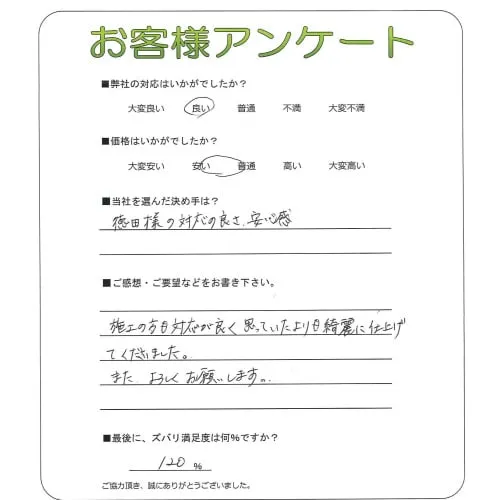 お客様アンケート
■弊社の対応はいかがでしたか？
大変良い 良い 普通 不満 大変不満
■価格はいかがでしたか？
大変安い 安い 普通 高い 大変高い
■当社を選んだ決め手は？
徳田様の対応の良さ、安心感
■ご感想・ご要望などをお書き下さい。
施工の方も対応が良く思っていたよりも綺麗に仕上げ
てくださいました。
また よろしくお願いします。
■最後に、ズバリ満足度は何%ですか？
120 %
ご協力頂き、誠にありがとうございました。